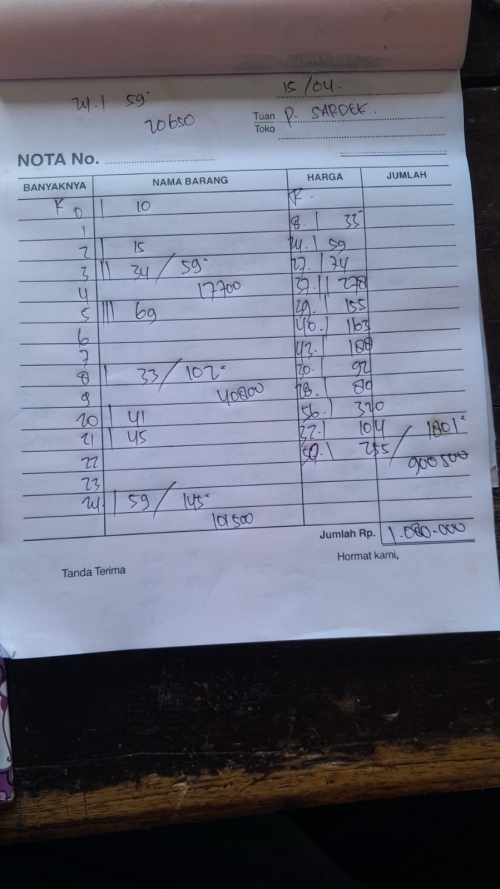 15/04.
24. | 59-
20650
Tuan P. SARDEK.
Toko
NOTA No.
BANYAKNYA NAMA BARANG HARGA JUMLAH
K 0 | 10 K.
1 8. | 33-
2 | 15 24. | 59
3 ||| 34 / 59- 27. | 74
4 17700 37. || 278
5 ||| 69 29. || 155
6 40. | 163
7 43. | 188
8 | 33 / 102- 30. | 92
9 40800 28. | 80
20 | 41 56. | 320
21 | 45 32. | 104 / 1801-
22 50. | 255 900500
23
24. | 59 / 145-
101500
Jumlah Rp. 1.080.000
Tanda Terima Hormat kami,